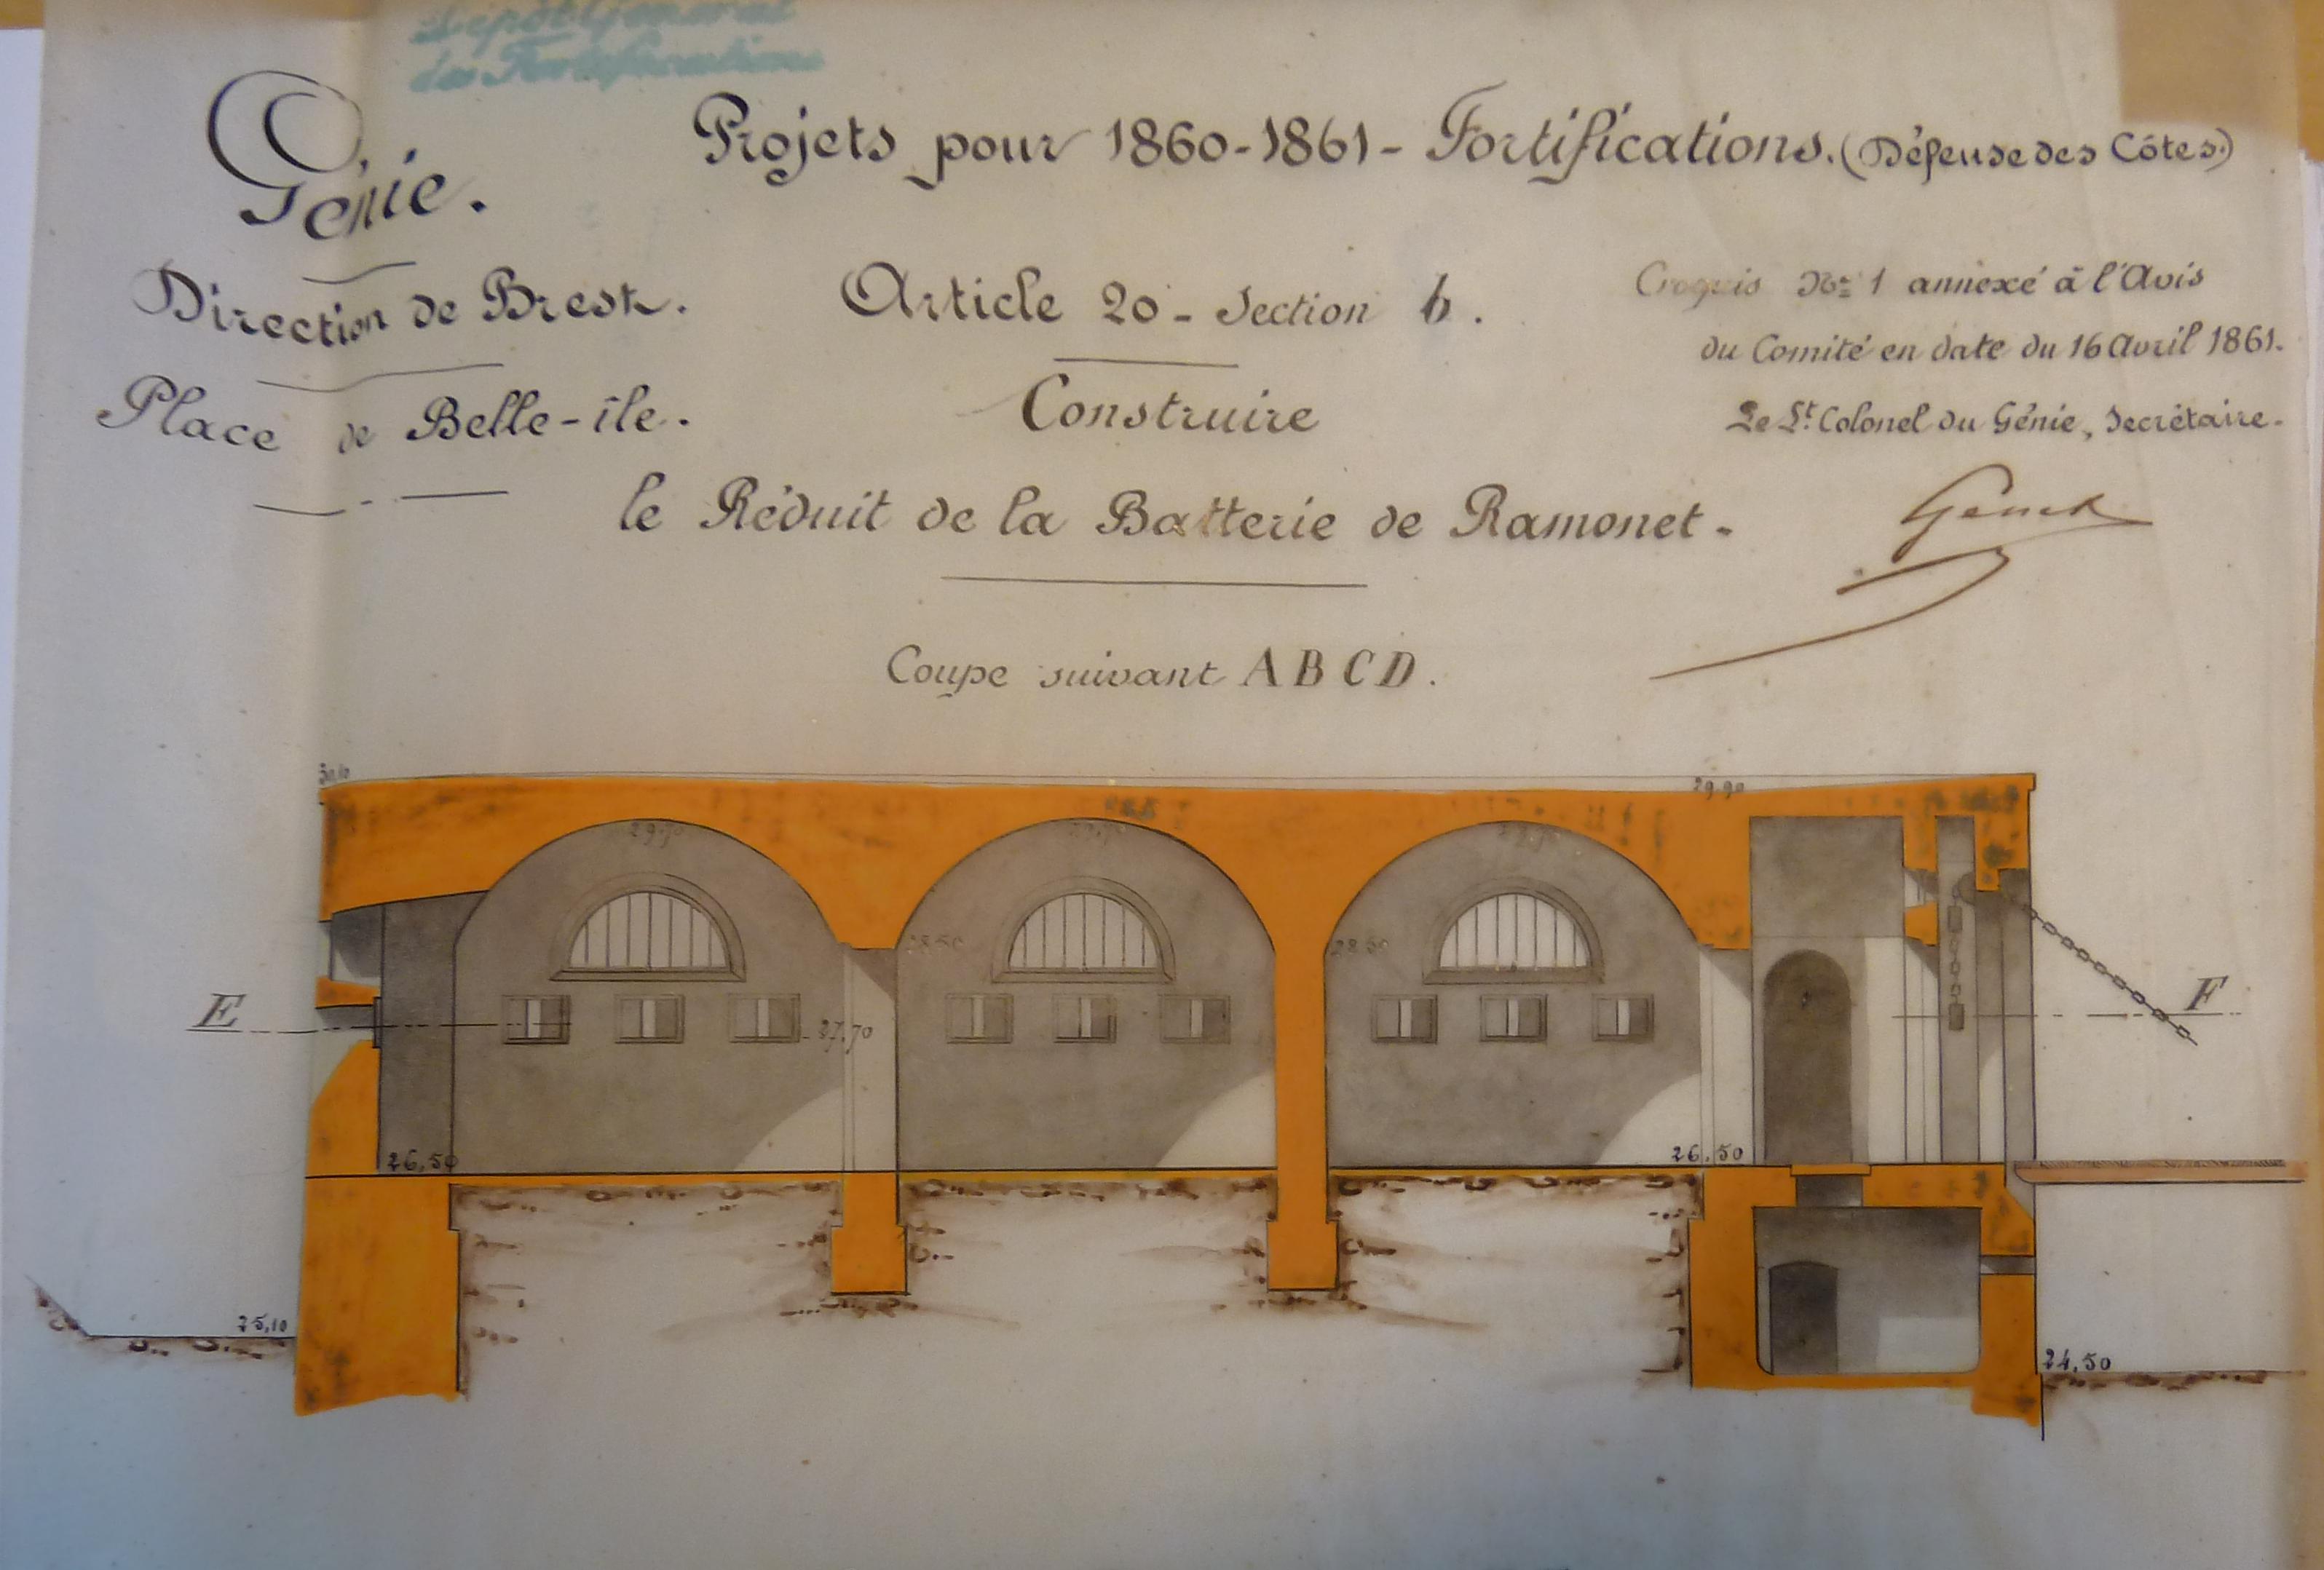 Dépôt Général
des Fortifications
Génie.
Projets pour 1860-1861- Fortifications. (Défense des Côtes.)
Direction de Brest.
Article 20 - Section 6.
Croquis No 1 annexé à l'Avis
du Comité en date du 16 Avril 1861.
Place de Belle-île.
Construire
Le Lt. Colonel du Génie, Secrétaire.
le Réduit de la Batterie de Ramonet.
Coupe suivant A B C D.
30,10
29,90
29,70
29,70
29,70
28,50
28,50
E
27,70
F
26,50
26,50
25,10
24,50